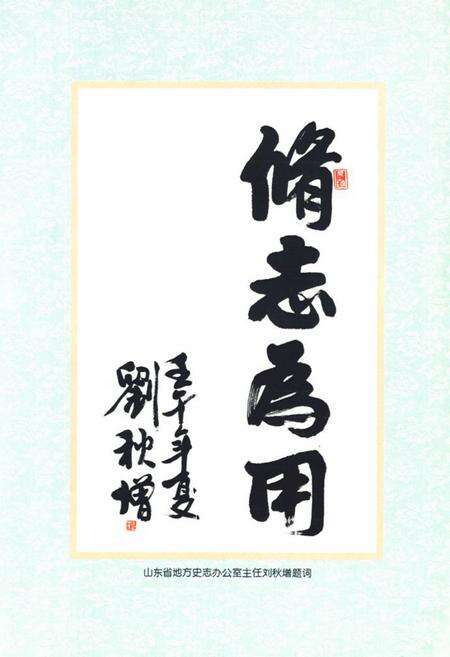 脩志為用
壬午年夏
劉秋增
山东省地方史志办公室主任刘秋增题词